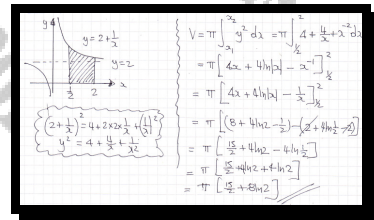 y
y = 2 + 1/x
y = 2
x
1/2 2
(2 + 1/x)² = 4 + 2×2×1/x + (1/x)²
y² = 4 + 4/x + 1/x²
V = π∫_{x₁}^{x₂} y² dx = π∫_{1/2}^{2} 4 + 4/x + x⁻² dx
= π[4x + 4ln|x| - x⁻¹]_{1/2}^{2}
= π[4x + 4ln|x| - 1/x]_{1/2}^{2}
= π[(8 + 4ln2 - 1/2) - (2 + 4ln1/2 - 2)]
= π[15/2 + 4ln2 - 4ln1/2]
= π[15/2 + 4ln2 + 4ln2]
= π[15/2 + 8ln2]